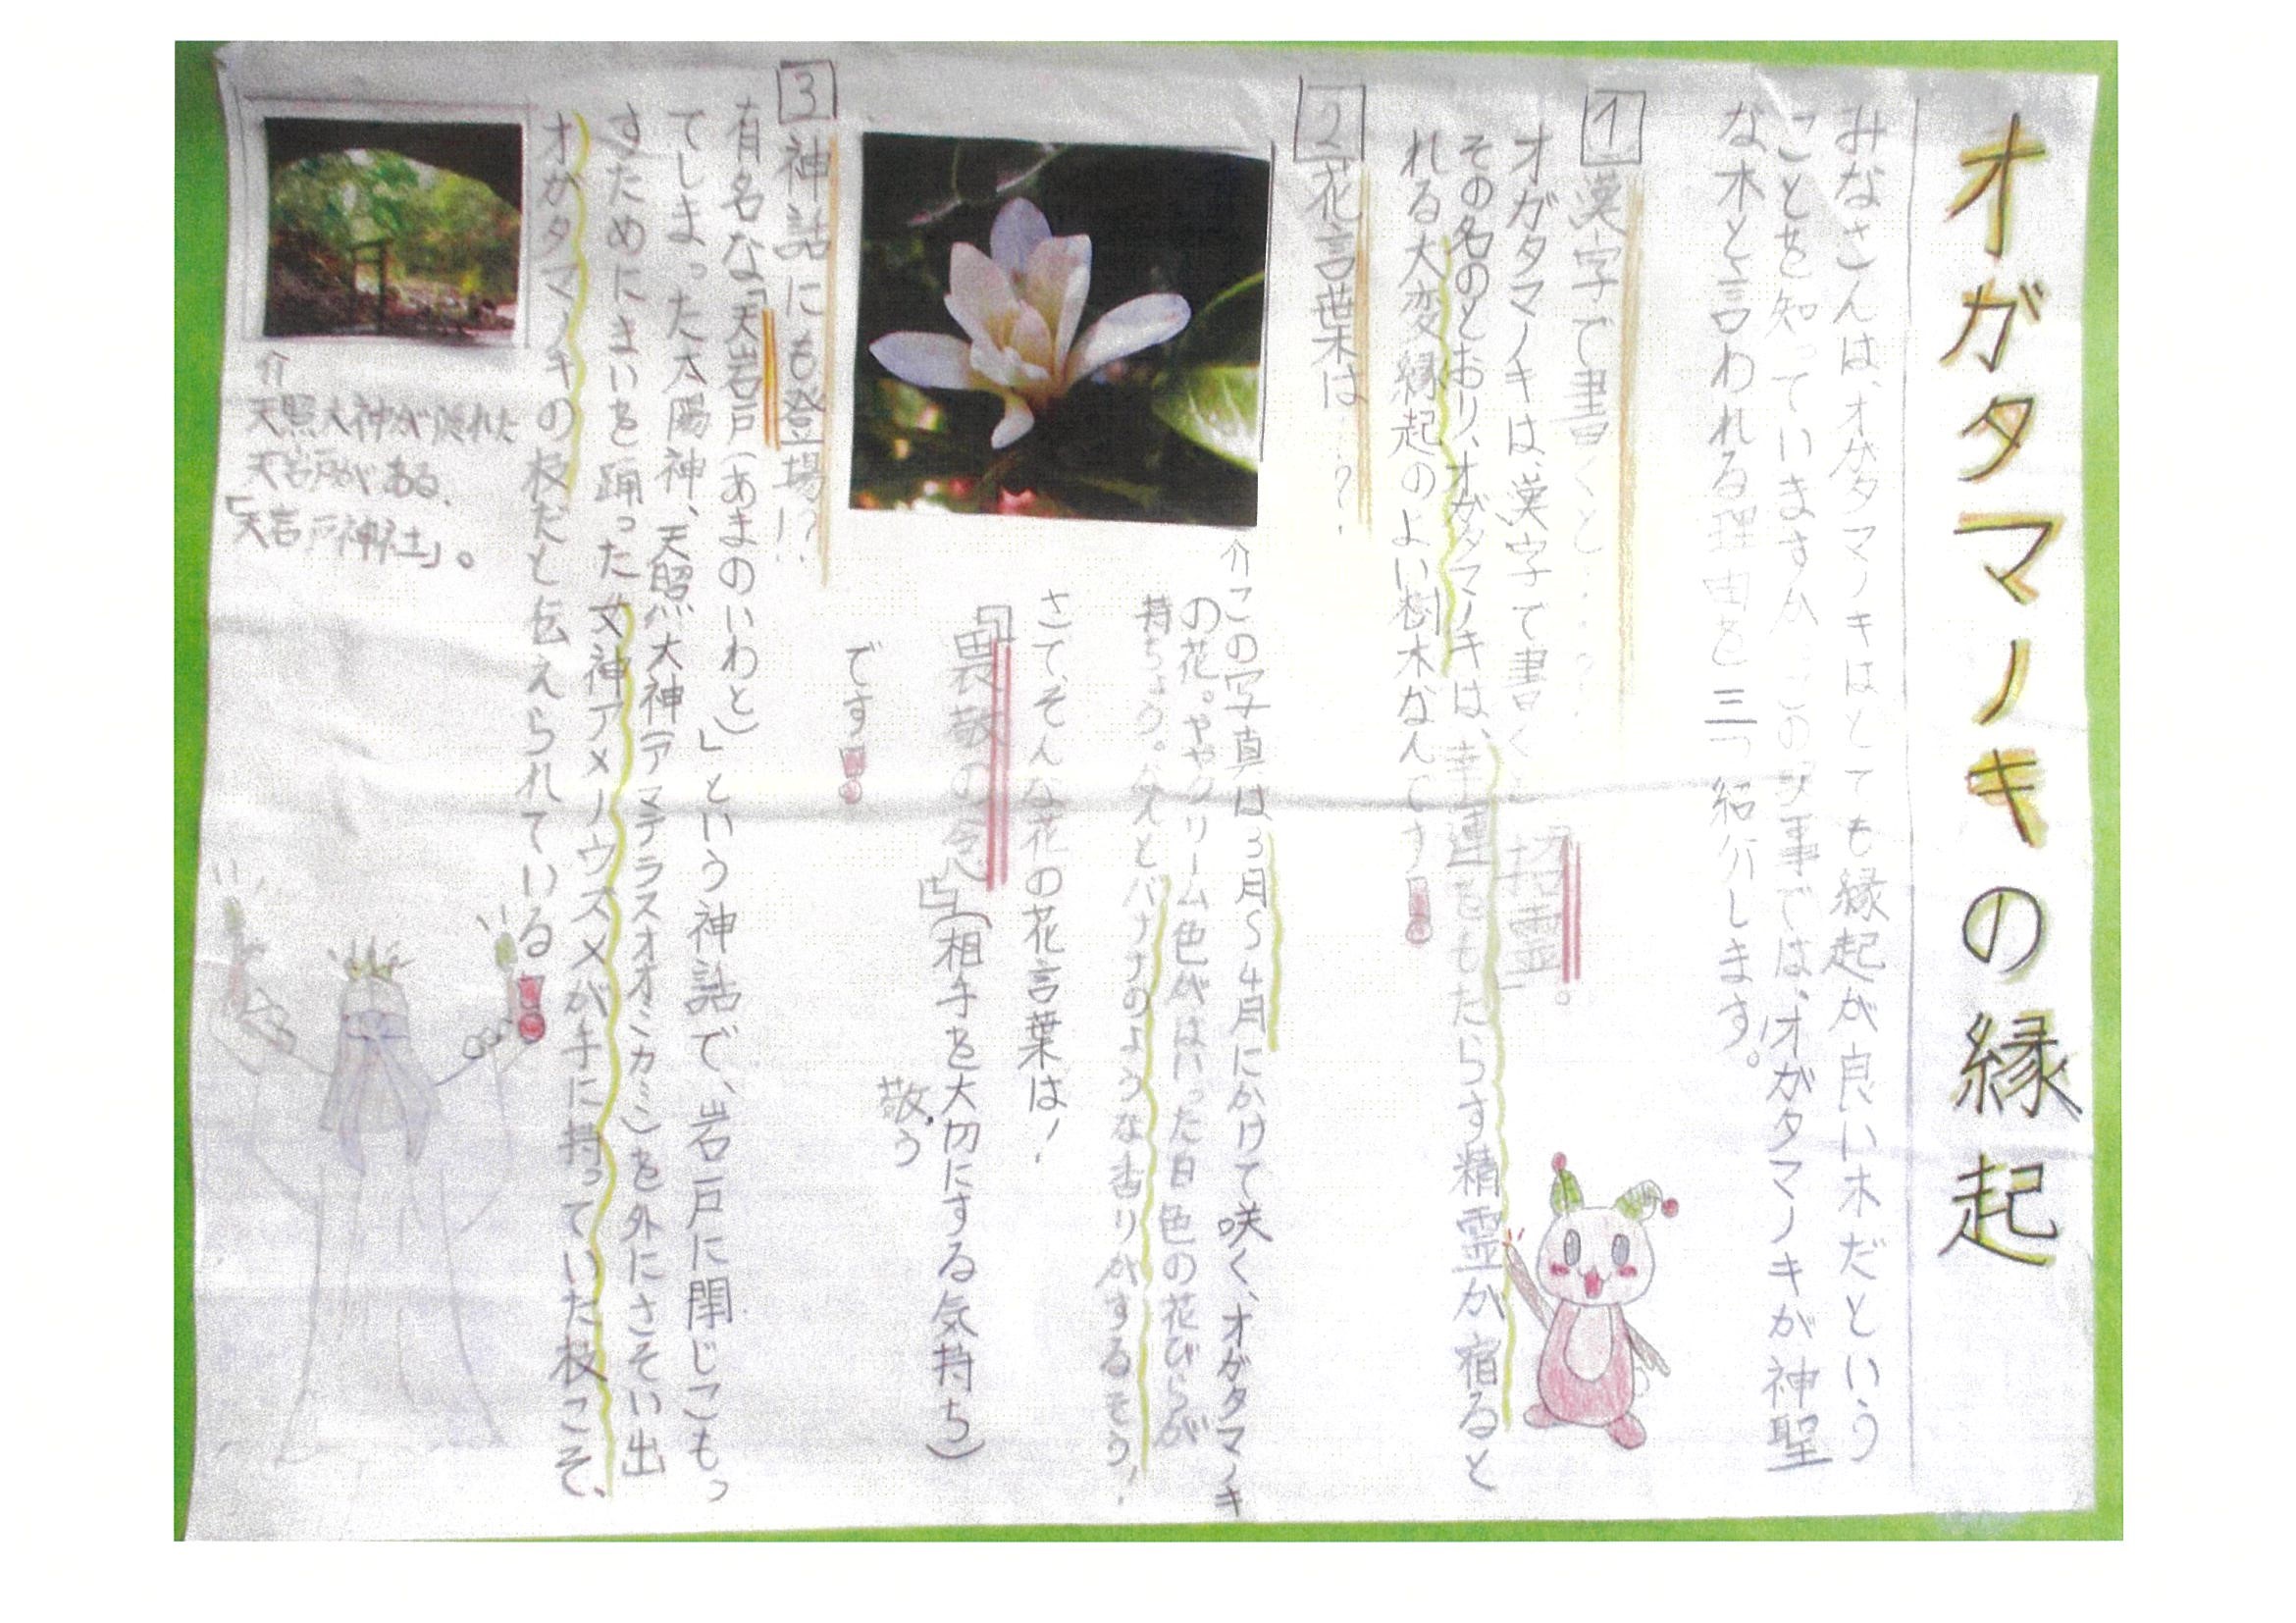 オガタマノキの縁起
みなさんは、オガタマノキはとても縁起が良い木だという
ことを知っていますか。この記事では、オガタマノキが神聖
な木と言われる理由を三つ紹介します。
1 漢字で書くと…?
オガタマノキは、漢字で書くと「招霊」。
その名のとおり、オガタマノキは、幸運をもたらす精霊が宿ると
れる大変縁起のよい樹木なんです!
2 花言葉は…?
この写真は3月〜4月にかけて咲く、オガタマノキ
の花。ややクリーム色がはいった白色の花びらが
持ちょう。なんとバナナのような香りがするそう!
さて、そんな花の花言葉は!
「畏敬の念」(相手を大切にする気持ち)
敬う
です!
3 神話にも登場!?
有名な「天岩戸(あまのいわと)」という神話で、岩戸に閉じこもっ
てしまった太陽神、天照大神(アマテラスオオミカミ)を外にさそい出
すためにまいを踊った女神アメノウズメが手に持っていた枝こそ、
オガタマノキの枝だと伝えられている!
天照大神が隠れた
天岩戸がある、
「天岩戸神社」。